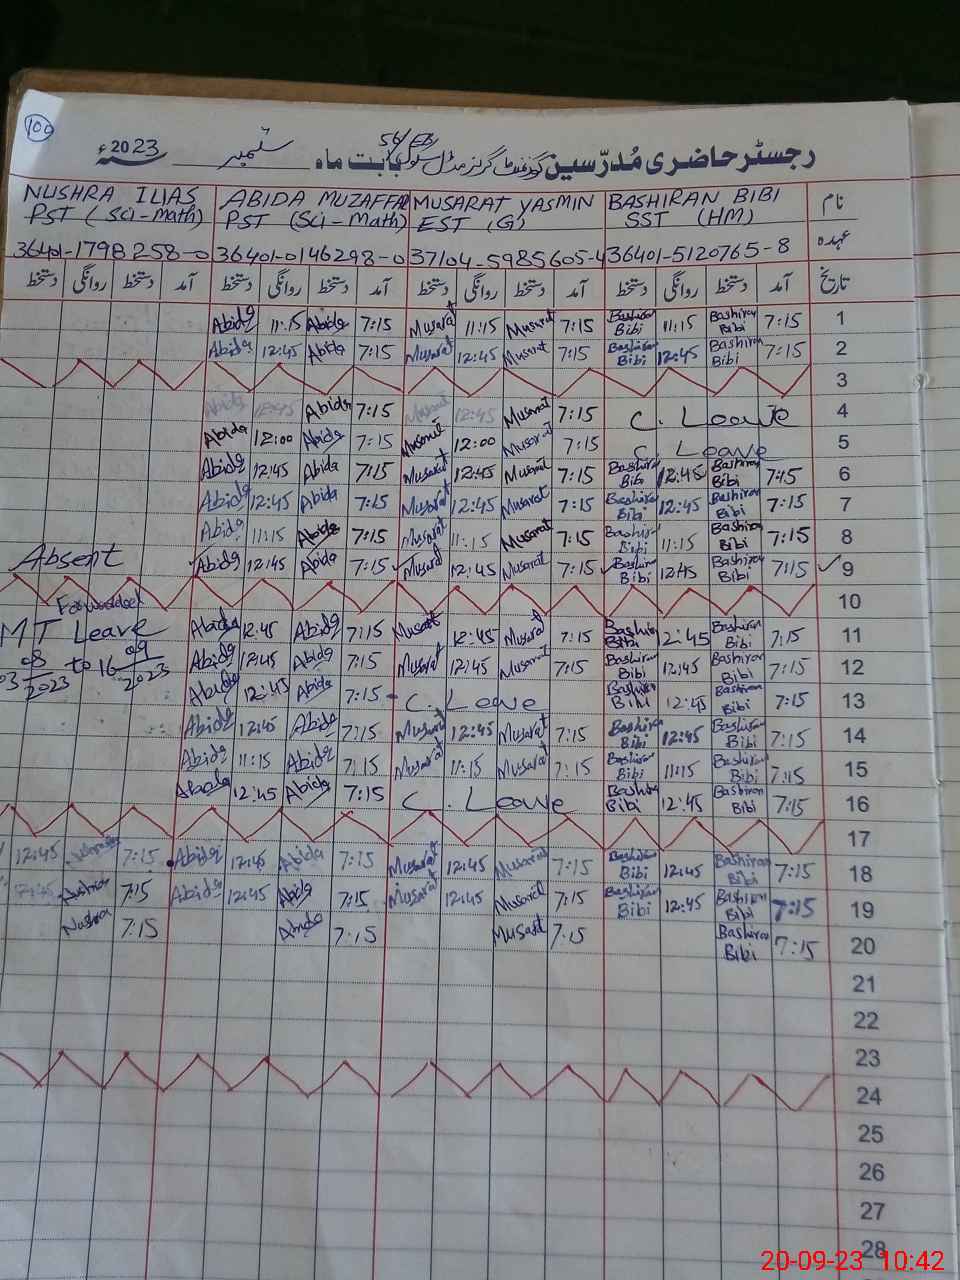 100
رجسٹر حاضری مُدرّسین گورنمنٹ گرلز مڈل سکول 56/EB بابت ماہ ستمبر سنہ 2023ء
نام BASHIRAN BIBI MUSARAT YASMIN ABIDA MUZAFFAR NUSHRA ILIAS
عہدہ SST (HM) EST (G) PST (Sci-Math) PST (Sci-Math)
36401-5120765-8 37104-5985605-4 36401-0146298-0 36401-1798258-0
تاریخ آمد دستخط روانگی دستخط آمد دستخط روانگی دستخط آمد دستخط روانگی دستخط آمد دستخط روانگی دستخط
1 7:15 Bashiran Bibi 11:15 Bashiran Bibi 7:15 Musarat 11:15 Musarat 7:15 Abida 11:15 Abida
2 7:15 Bashiran Bibi 12:45 Bashiran Bibi 7:15 Musarat 12:45 Musarat 7:15 Abida 12:45 Abida
3
4 C. Leave 7:15 Musarat 12:45 Musarat 7:15 Abida 12:45 Abida
5 C. Leave 7:15 Musarat 12:00 Musarat 7:15 Abida 12:00 Abida
6 7:15 Bashiran Bibi 12:45 Bashiran Bibi 7:15 Musarat 12:45 Musarat 7:15 Abida 12:45 Abida
7 7:15 Bashiran Bibi 12:45 Bashiran Bibi 7:15 Musarat 12:45 Musarat 7:15 Abida 12:45 Abida
8 7:15 Bashiran Bibi 11:15 Bashiran Bibi 7:15 Musarat 11:15 Musarat 7:15 Abida 11:15 Abida
9 7:15 Bashiran Bibi 12:45 Bashiran Bibi 7:15 Musarat 12:45 Musarat 7:15 Abida 12:45 Abida Absent
10 Forwarded
11 7:15 Bashiran Bibi 12:45 Bashiran Bibi 7:15 Musarat 12:45 Musarat 7:15 Abida 12:45 Abida MT Leave
12 7:15 Bashiran Bibi 12:45 Bashiran Bibi 7:15 Musarat 12:45 Musarat 7:15 Abida 12:45 Abida 03 08/2023 to 16 09/2023
13 7:15 Bashiran Bibi 12:45 Bashiran Bibi C. Leave 7:15 Abida 12:45 Abida
14 7:15 Bashiran Bibi 12:45 Bashiran Bibi 7:15 Musarat 12:45 Musarat 7:15 Abida 12:45 Abida
15 7:15 Bashiran Bibi 11:15 Bashiran Bibi 7:15 Musarat 11:15 Musarat 7:15 Abida 11:15 Abida
16 7:15 Bashiran Bibi 12:45 Bashiran Bibi C. Leave 7:15 Abida 12:45 Abida
17
18 7:15 Bashiran Bibi 12:45 Bashiran Bibi 7:15 Musarat 12:45 Musarat 7:15 Abida 12:45 Abida 7:15 Nushra 12:45
19 7:15 Bashiran Bibi 12:45 Bashiran Bibi 7:15 Musarat 12:45 Musarat 7:15 Abida 12:45 Abida 7:15 Nushra 12:45
20 7:15 Bashiran Bibi 7:15 Musarat 7:15 Abida 7:15 Nushra
21
22
23
24
25
26
27
28
20-09-23 10:42